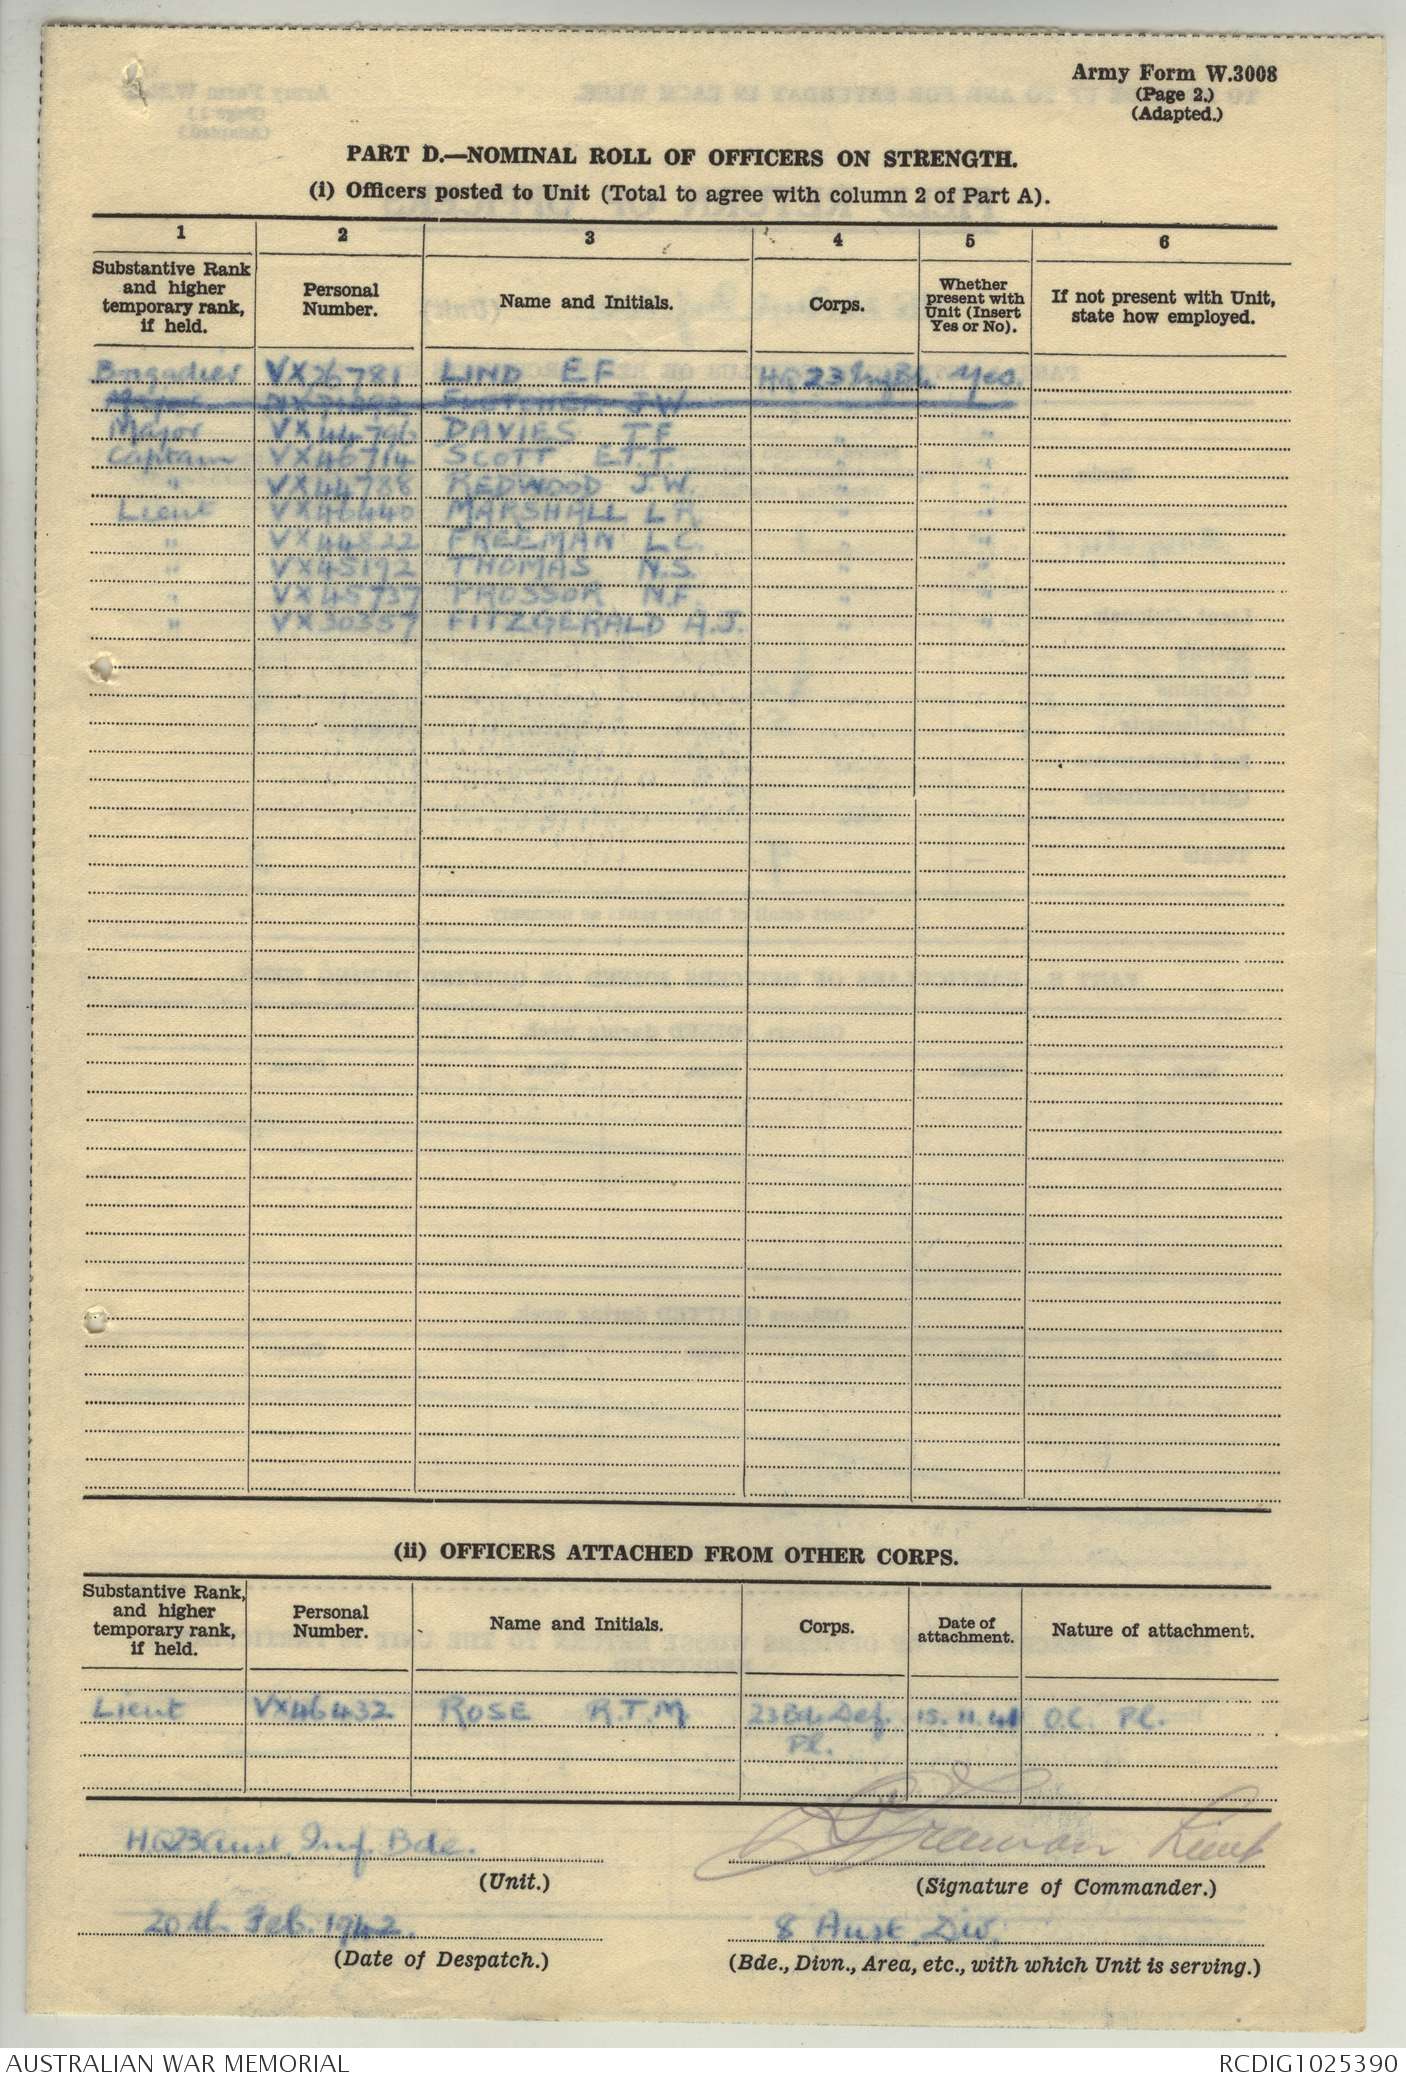 Army Form W.3008
(Page 2.)
(Adapted.)
PART D.—NOMINAL ROLL OF OFFICERS ON STRENGTH.
(i) Officers posted to Unit (Total to agree with column 2 of Part A).
1 2 3 4 5 6
Substantive Rank and higher temporary rank, if held. Personal Number. Name and Initials. Corps. Whether present with Unit (Insert Yes or No). If not present with Unit, state how employed.
Brigadier VX26781 LIND E F HQ 23 Inf Bde. Yes.
Major FLETCHER J W
Major VX44796 DAVIES T F " "
Captain VX46714 SCOTT E.T.T. " "
" VX44788 REDWOOD J.W. " "
Lieut VX46440 MARSHALL L R. " "
" VX44822 FREEMAN L C. " "
" VX45192 THOMAS N.S. " "
" VX45737 PROSSOR N.F. " "
" VX30357 FITZGERALD A.J. " "
(ii) OFFICERS ATTACHED FROM OTHER CORPS.
Substantive Rank, and higher temporary rank, if held. Personal Number. Name and Initials. Corps. Date of attachment. Nature of attachment.
Lieut VX46432 ROSE R.T.M 23 Bde Def. 15.11.41 O.C. Pl.
Pl.
H.Q 23 Aust. Inf. Bde. Freeman Lieut
(Unit.) (Signature of Commander.)
20th Feb. 1942. 8 Aust. Div.
(Date of Despatch.) (Bde., Divn., Area, etc., with which Unit is serving.)
AUSTRALIAN WAR MEMORIAL RCDIG1025390